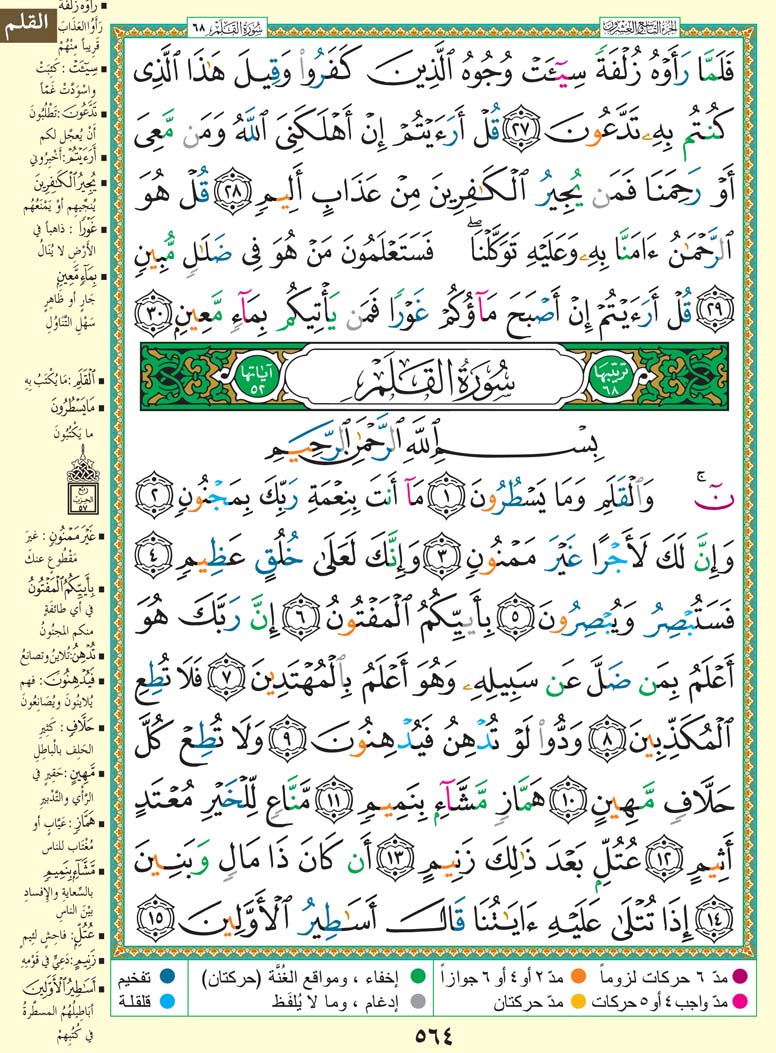 الجزء التاسع والعشرون
سورة القلم ٦٨
القلم
فَلَمَّا رَأَوْهُ زُلْفَةً سِيٓـَٔتْ وُجُوهُ ٱلَّذِينَ كَفَرُوا۟ وَقِيلَ هَٰذَا ٱلَّذِى
كُنتُم بِهِۦ تَدَّعُونَ ٢٧ قُلْ أَرَءَيْتُمْ إِنْ أَهْلَكَنِىَ ٱللَّهُ وَمَن مَّعِىَ
أَوْ رَحِمَنَا فَمَن يُجِيرُ ٱلْكَٰفِرِينَ مِنْ عَذَابٍ أَلِيمٍ ٢٨ قُلْ هُوَ
ٱلرَّحْمَٰنُ ءَامَنَّا بِهِۦ وَعَلَيْهِ تَوَكَّلْنَا ۖ فَسَتَعْلَمُونَ مَنْ هُوَ فِى ضَلَٰلٍ مُّبِينٍ
٢٩ قُلْ أَرَءَيْتُمْ إِنْ أَصْبَحَ مَآؤُكُمْ غَوْرًا فَمَن يَأْتِيكُم بِمَآءٍ مَّعِينٍ ٣٠
ترتيبها ٦٨ سُورَةُ القَلَمِ آياتها ٥٢
بِسْمِ ٱللَّهِ ٱلرَّحْمَٰنِ ٱلرَّحِيمِ
نٓ ۚ وَٱلْقَلَمِ وَمَا يَسْطُرُونَ ١ مَآ أَنتَ بِنِعْمَةِ رَبِّكَ بِمَجْنُونٍ ٢
وَإِنَّ لَكَ لَأَجْرًا غَيْرَ مَمْنُونٍ ٣ وَإِنَّكَ لَعَلَىٰ خُلُقٍ عَظِيمٍ ٤
فَسَتُبْصِرُ وَيُبْصِرُونَ ٥ بِأَييِّكُمُ ٱلْمَفْتُونُ ٦ إِنَّ رَبَّكَ هُوَ
أَعْلَمُ بِمَن ضَلَّ عَن سَبِيلِهِۦ وَهُوَ أَعْلَمُ بِٱلْمُهْتَدِينَ ٧ فَلَا تُطِعِ
ٱلْمُكَذِّبِينَ ٨ وَدُّوا۟ لَوْ تُدْهِنُ فَيُدْهِنُونَ ٩ وَلَا تُطِعْ كُلَّ
حَلَّافٍ مَّهِينٍ ١٠ هَمَّازٍ مَّشَّآءٍۭ بِنَمِيمٍ ١١ مَّنَّاعٍ لِّلْخَيْرِ مُعْتَدٍ
أَثِيمٍ ١٢ عُتُلٍّۭ بَعْدَ ذَٰلِكَ زَنِيمٍ ١٣ أَن كَانَ ذَا مَالٍ وَبَنِينَ
١٤ إِذَا تُتْلَىٰ عَلَيْهِ ءَايَٰتُنَا قَالَ أَسَٰطِيرُ ٱلْأَوَّلِينَ ١٥
رَأَوْهُ زُلْفَةً
رَأَوُا العَذَابَ
قريباً مِنْهُم
سِيٓـَٔتْ : كَئِبَتْ
واسْوَدَّتْ غَمّاً
تَدَّعُونَ : تَطْلُبُونَ
أَنْ يُعَجَّلَ لكم
أَرَءَيْتُمْ : أَخْبِرُوني
يُجِيرُ ٱلْكَٰفِرِينَ
يُنْجِيهِم أَوْ يَمْنَعُهُم
غَوْرًا : ذاهِباً في
الأَرْضِ لا يُنَالُ
بِمَآءٍ مَّعِينٍ
جَارٍ أو ظَاهِرٍ
سَهْلِ التَّنَاوُلِ
ٱلْقَلَمِ : مَا يُكْتَبُ بِهِ
مَا يَسْطُرُونَ
ما يَكْتُبُونَ
ربع
الحزب
٥٧
غَيْرَ مَمْنُونٍ : غيرَ
مَقْطُوعٍ عنكَ
بِأَييِّكُمُ ٱلْمَفْتُونُ
في أي طائفةٍ
منكم المجنُونُ
تُدْهِنُ : تُلايِنُ وتصانِعُ
فَيُدْهِنُونَ : فهم
يُلاينُونَ ويُصَانِعُونَ
حَلَّافٍ : كَثِيرِ
الحَلِفِ بالْبَاطِلِ
مَّهِينٍ : حَقِيرٍ في
الرَّأيِ والتَّدْبيرِ
هَمَّازٍ : عَيَّابٍ أو
مُغْتَابٍ للناس
مَّشَّآءٍۭ بِنَمِيمٍ
بالسِّعايةِ والإِفسادِ
بَيْنَ الناسِ
عُتُلٍّ : فاحِشٍ لئيم
زَنِيمٍ : دَعِيٍّ في قَوْمِهِ
أَسَٰطِيرُ ٱلْأَوَّلِينَ
أباطِيلُهُمُ المسطَّرةُ
في كُتُبِهِمْ
مدّ ٦ حركات لزوماً مدّ ٢ أو ٤ أو ٦ جوازاً إخفاء ، ومواقع الغُنَّة (حركتان) تفخيم
مدّ واجب ٤ أو ٥ حركات مدّ حركتان إدغام ، وما لا يُلفَظ قلقلة
٥٦٤